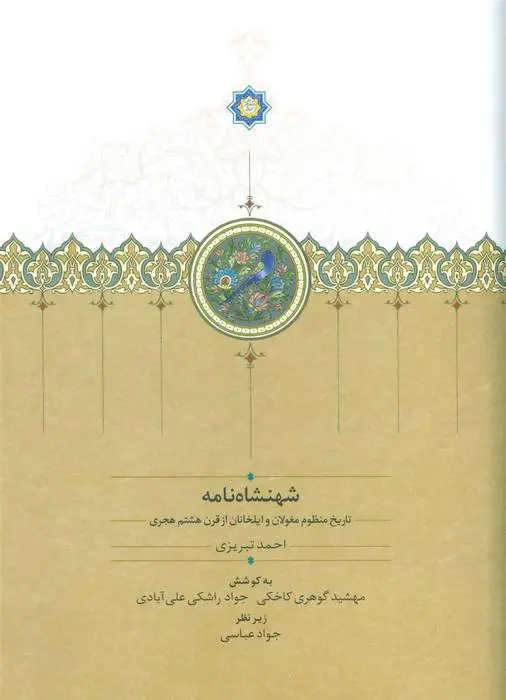 شهنشاه‌نامه
تاریخ منظوم مغولان و ایلخانان از قرن هشتم هجری
احمد تبریزی
به کوشش
مهشید گوهری کاخکی جواد راشکی علی‌آبادی
زیر نظر
جواد عباسی